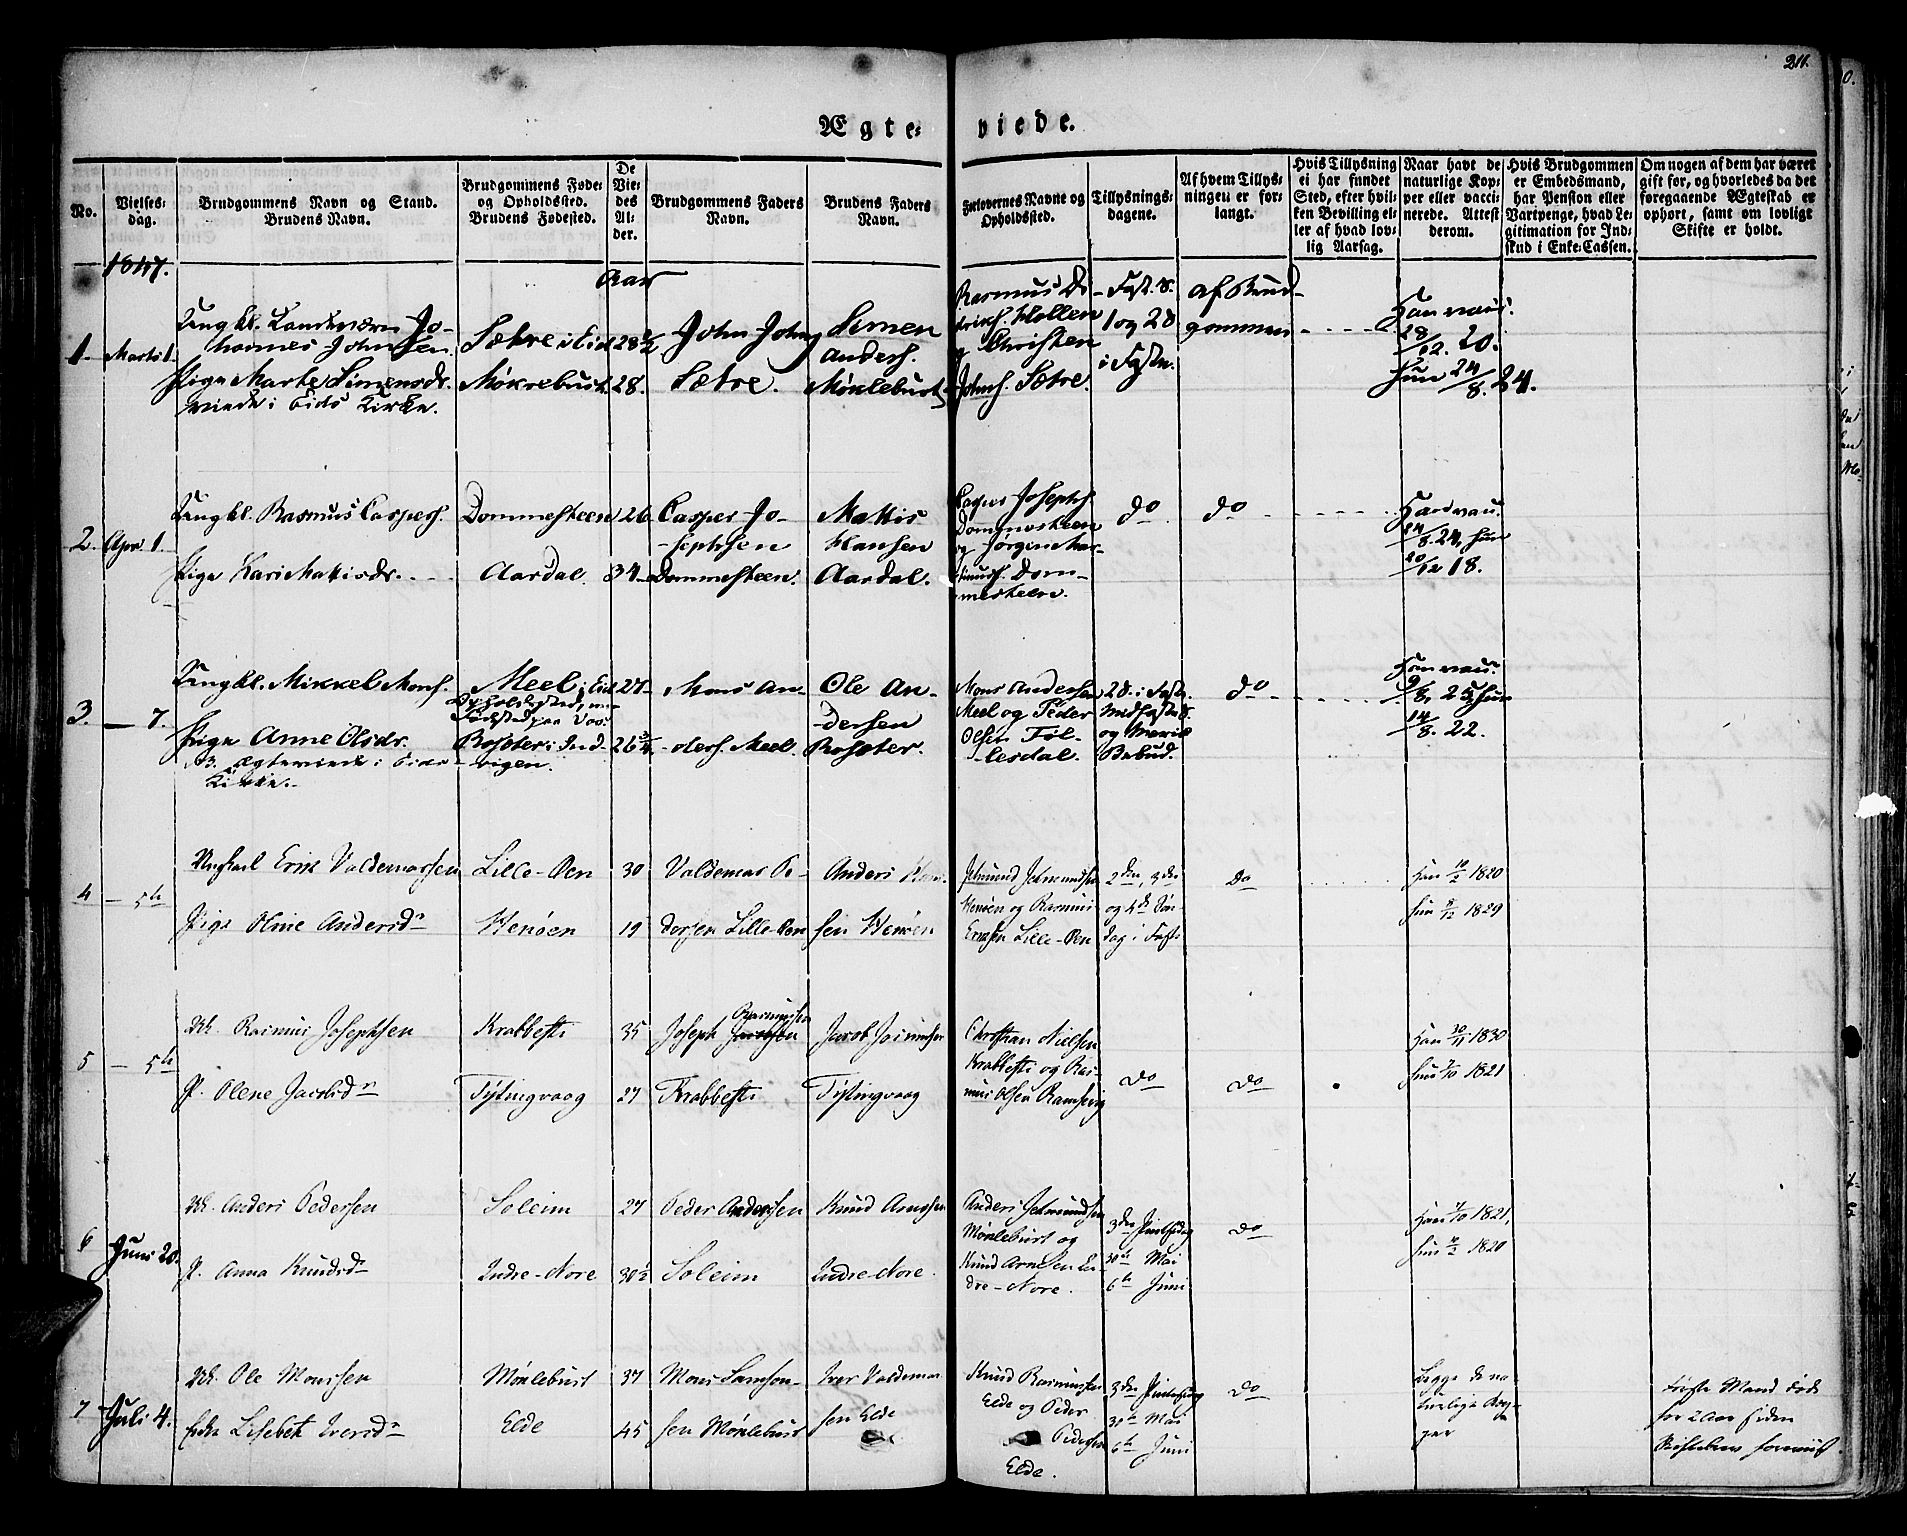 211.
Ægte- viede.
No.
Vielses-
dag.
Brudgommens Navn og Stand.
Brudens Navn.
Brudgommens Føde-
og Opholdssted.
Brudens Fødested.
De
Vie-
des
Al-
der.
Brudgommens Faders
Navn.
Brudens Faders
Navn.
Forlovernes Navne og
Opholdssted.
Tillysnings-
dagene.
Af hvem Tillys-
ningen er for-
langt.
Hvis Tillysning
ei har fundet
Sted, efter hvil-
ken Bevilling el-
ler af hvad lov-
lig Aarsag.
Naar havt de
naturlige Kop-
per eller vacci-
nerede. Attest
derom.
Hvis Brudgommen
er Embedsmand,
har Pension eller
Vartpenge, hvad Le-
gitimation for Ind-
skud i Enke-Cassen.
Om nogen af dem har været
gift før, og hvorledes da det
foregaaende Ægtestad er
ophørt, samt om lovligt
Skifte er holdt.
1847.
Aar
1 Marts 1.
Ungkl. Landværn Jo-
hannes Johnsen
Pige Marte Simensdr.
viede i Eids Kirke.
Sætre i Eid
Møklebust.
28 1/2
28.
John Johns
Sætre.
Simen
Anders.
Møklebust
Rasmus Di-
driks. Hollen
og Christen
Johns. Sætre.
Fast. S.
1 og 2 S
i Faste.
af Brud-
gommen
Han vac.
28/12. 20.
Hun 24/8. 24.
2. Apr. 1.
Ungkl. Rasmus Caspers.
Pige Kari Mattisdr.
Dommesteen
Aardal.
26
34
Casper Jo-
sephsen
Dommesteen.
Mattis
Hansen
Aardal.
Casper Josephs.
Dommesteen
og Jørgen Ras-
mus. Dom-
mesteen.
do
do
Han vac.
24/8. 24, Hun
20/12 18.
3. — 7.
Ungkl. Mikkel Mons.
Pige Anne Olsdr.
B. Ægteviede i Eids
Kirke.
Meel i Eid
Opholdssted,
Fødested paa Vos.
Roseter i Ind-
vigen.
27
26 3/4
Mons An-
ders. Meel
Ole An-
dersen
Roseter.
Mons Andersen
Meel og Peder
Olsen Föl-
lesdal.
2 S. i Fast.
Midfaste S.
og Mariæ
Bebud.
do
Han vac.
9/8. 25, Hun
14/8. 22.
4 — 5te
Ungkarl Erik Valdemarsen
Pige Oline Andersdr
Lille-Øen
Henøen
30
19
Valdemar Pe-
dersen Lille-Øen
Anders Han-
sen Henøen
Jetmund Jetmundsen
Henøen og Rasmus
Ersen Lille-Øen
2den, 3die
og 4de Søn-
dag i Faste
do
Han 10/2 1820
Hun 8/12 1829
5 — 5te
Uk. Rasmus Josephsen
P. Olene Jacobsdr
Krabbesti
Tystingvaag
35
27
Joseph Rasmussen
Krabbesti
Jacob Joramsen
Tystingvaag
Christian Nielsen
Krabbesti og Ras-
mus Olsen Ramsevig
do
do
Han 30/11 1830
Hun 7/10 1821
6 Juni 20.
Uk. Anders Pedersen
P. Anna Knudsdr
Soleim
Indre-Nore
27
30 1/2
Peder Andersen
Soleim
Knud Arnesen
Indre-Nore.
Anders Jetmundsen
Møklebust og
Knud Arnesen In-
dre-Nore.
3die Pintsedag
30te Mai
6te Juni
do
Han 7/10 1821,
Hun 10/2 1820
7 Juli 4.
Uk. Ole Monsen
Enke Lisebet Iversdr
Møklebust
Elde
37
45
Mons Samson-
sen Møklebust
Iver Valdemar
sen Elde
Knud Rasmussen
Elde og Peder
Pedersen
Elde.
3die Pintsedag
30te Mai
6te Juni
do
Begge de na-
turlige Kop-
per
Første Mand døde
for 2 Aar siden